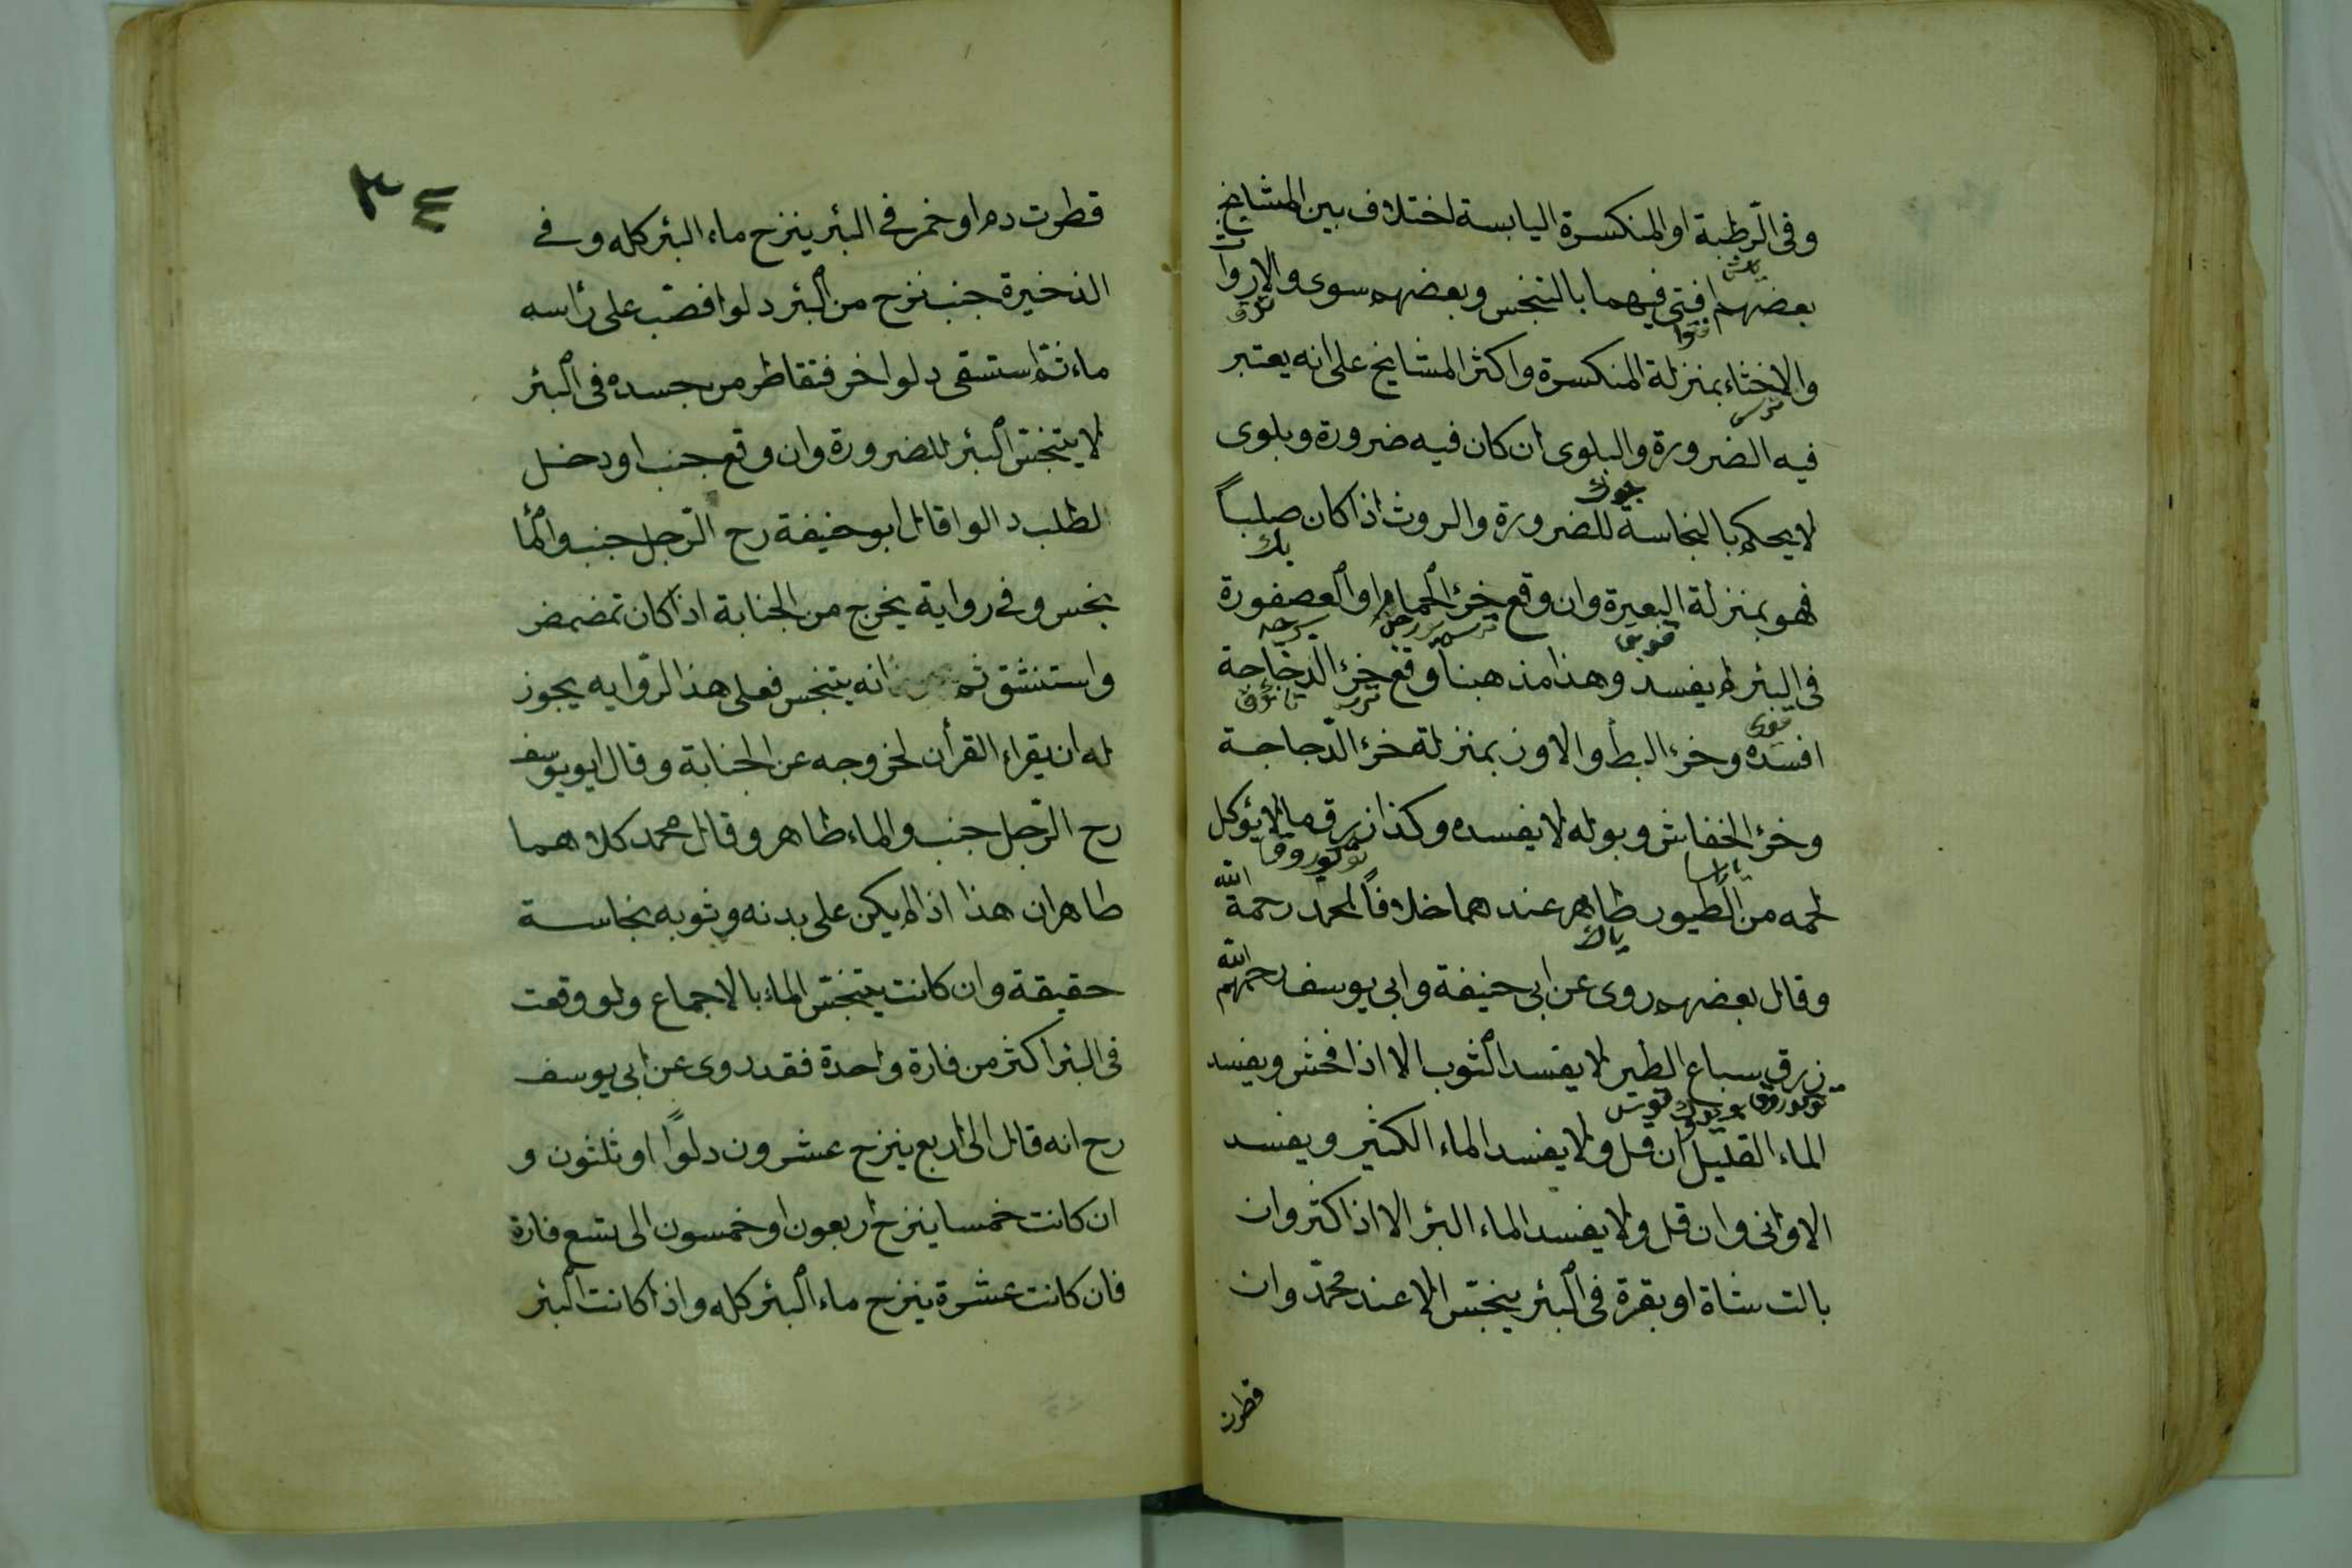 وفى الرّطبة او المنكسرة اليابسة اختلاف بين المشايخ
بعضهم افتى فيهما بالتنجس وبعضهم سوى والارواث
والاخثاء بمنزلة المنكسرة واكثر المشايخ على انه يعتبر
فيه الضرورة والبلوى ان كان فيه ضرورة وبلوى
لا يحكم بالنجاسة للضرورة والروث اذا كان صلباً
فهو بمنزلة البعيرة وان وقع خرء الحمام او العصفورة
فى البئر لم يفسد وهذا مذهبنا وقع خرء الدجاجة
افسده وخرء البط والاوز بمنزلة خرء الدّجاجة
وخرء الخفاش وبوله لا يفسده وكذا زرق ما لا يؤكل
لحمه من الطيور طاهر عندهما خلافاً لمحمد رحمة الله
وقال بعضهم روى عن ابى حنيفة وابى يوسف رحمهم الله
زرق سباع الطير لا يفسد الثوب الا اذا فحش ويفسد
الماء القليل ان قل ولا يفسد الماء الكثير ويفسد
الاوانى وان قل ولا يفسد الماء البئر الا اذا كثر وان
بالت شاة او بقرة فى البئر ينجّس الا عند محمّد وان
قطرت
٣٤
قطرت دم او خمر فى البئر ينزح ماء البئر كله وفى
الذخيرة جنب نزح من البئر دلوا فصبّ على رأسه
ماء ثمّ استسقى دلوا اخر فتقاطر من جسده فى البئر
لا يتنجّس البئر للضرورة وان وقع جنب او دخل
لطلب دالوا قال ابو حنيفة رح الرّجل جنب والماء
نجس وفى رواية يخرج من الجنابة اذا كان تمضمض
واستنشق ثم انه يتنجس فعلى هذا الرّوايه يجوز
له ان يقراء القرأن لخروجه عن الجنابة وقال ابو يوسف
رح الرّجل جنب والماء طاهر وقال محمد كلاهما
طاهران هذا اذا لم يكن على بدنه وثوبه نجاسة
حقيقة وان كانت يتنجّس الماء بالاجماع ولو وقعت
فى البئر اكثر من فارة واحدة فقد روى عن ابى يوسف
رح انه قال الى اربع ينزح عشرون دلوًا او ثلثون و
ان كانت خمسا ينزح اربعون او خمسون الى تسع فارة
فان كانت عشرة ينزح ماء البئر كله واذا كانت البئر